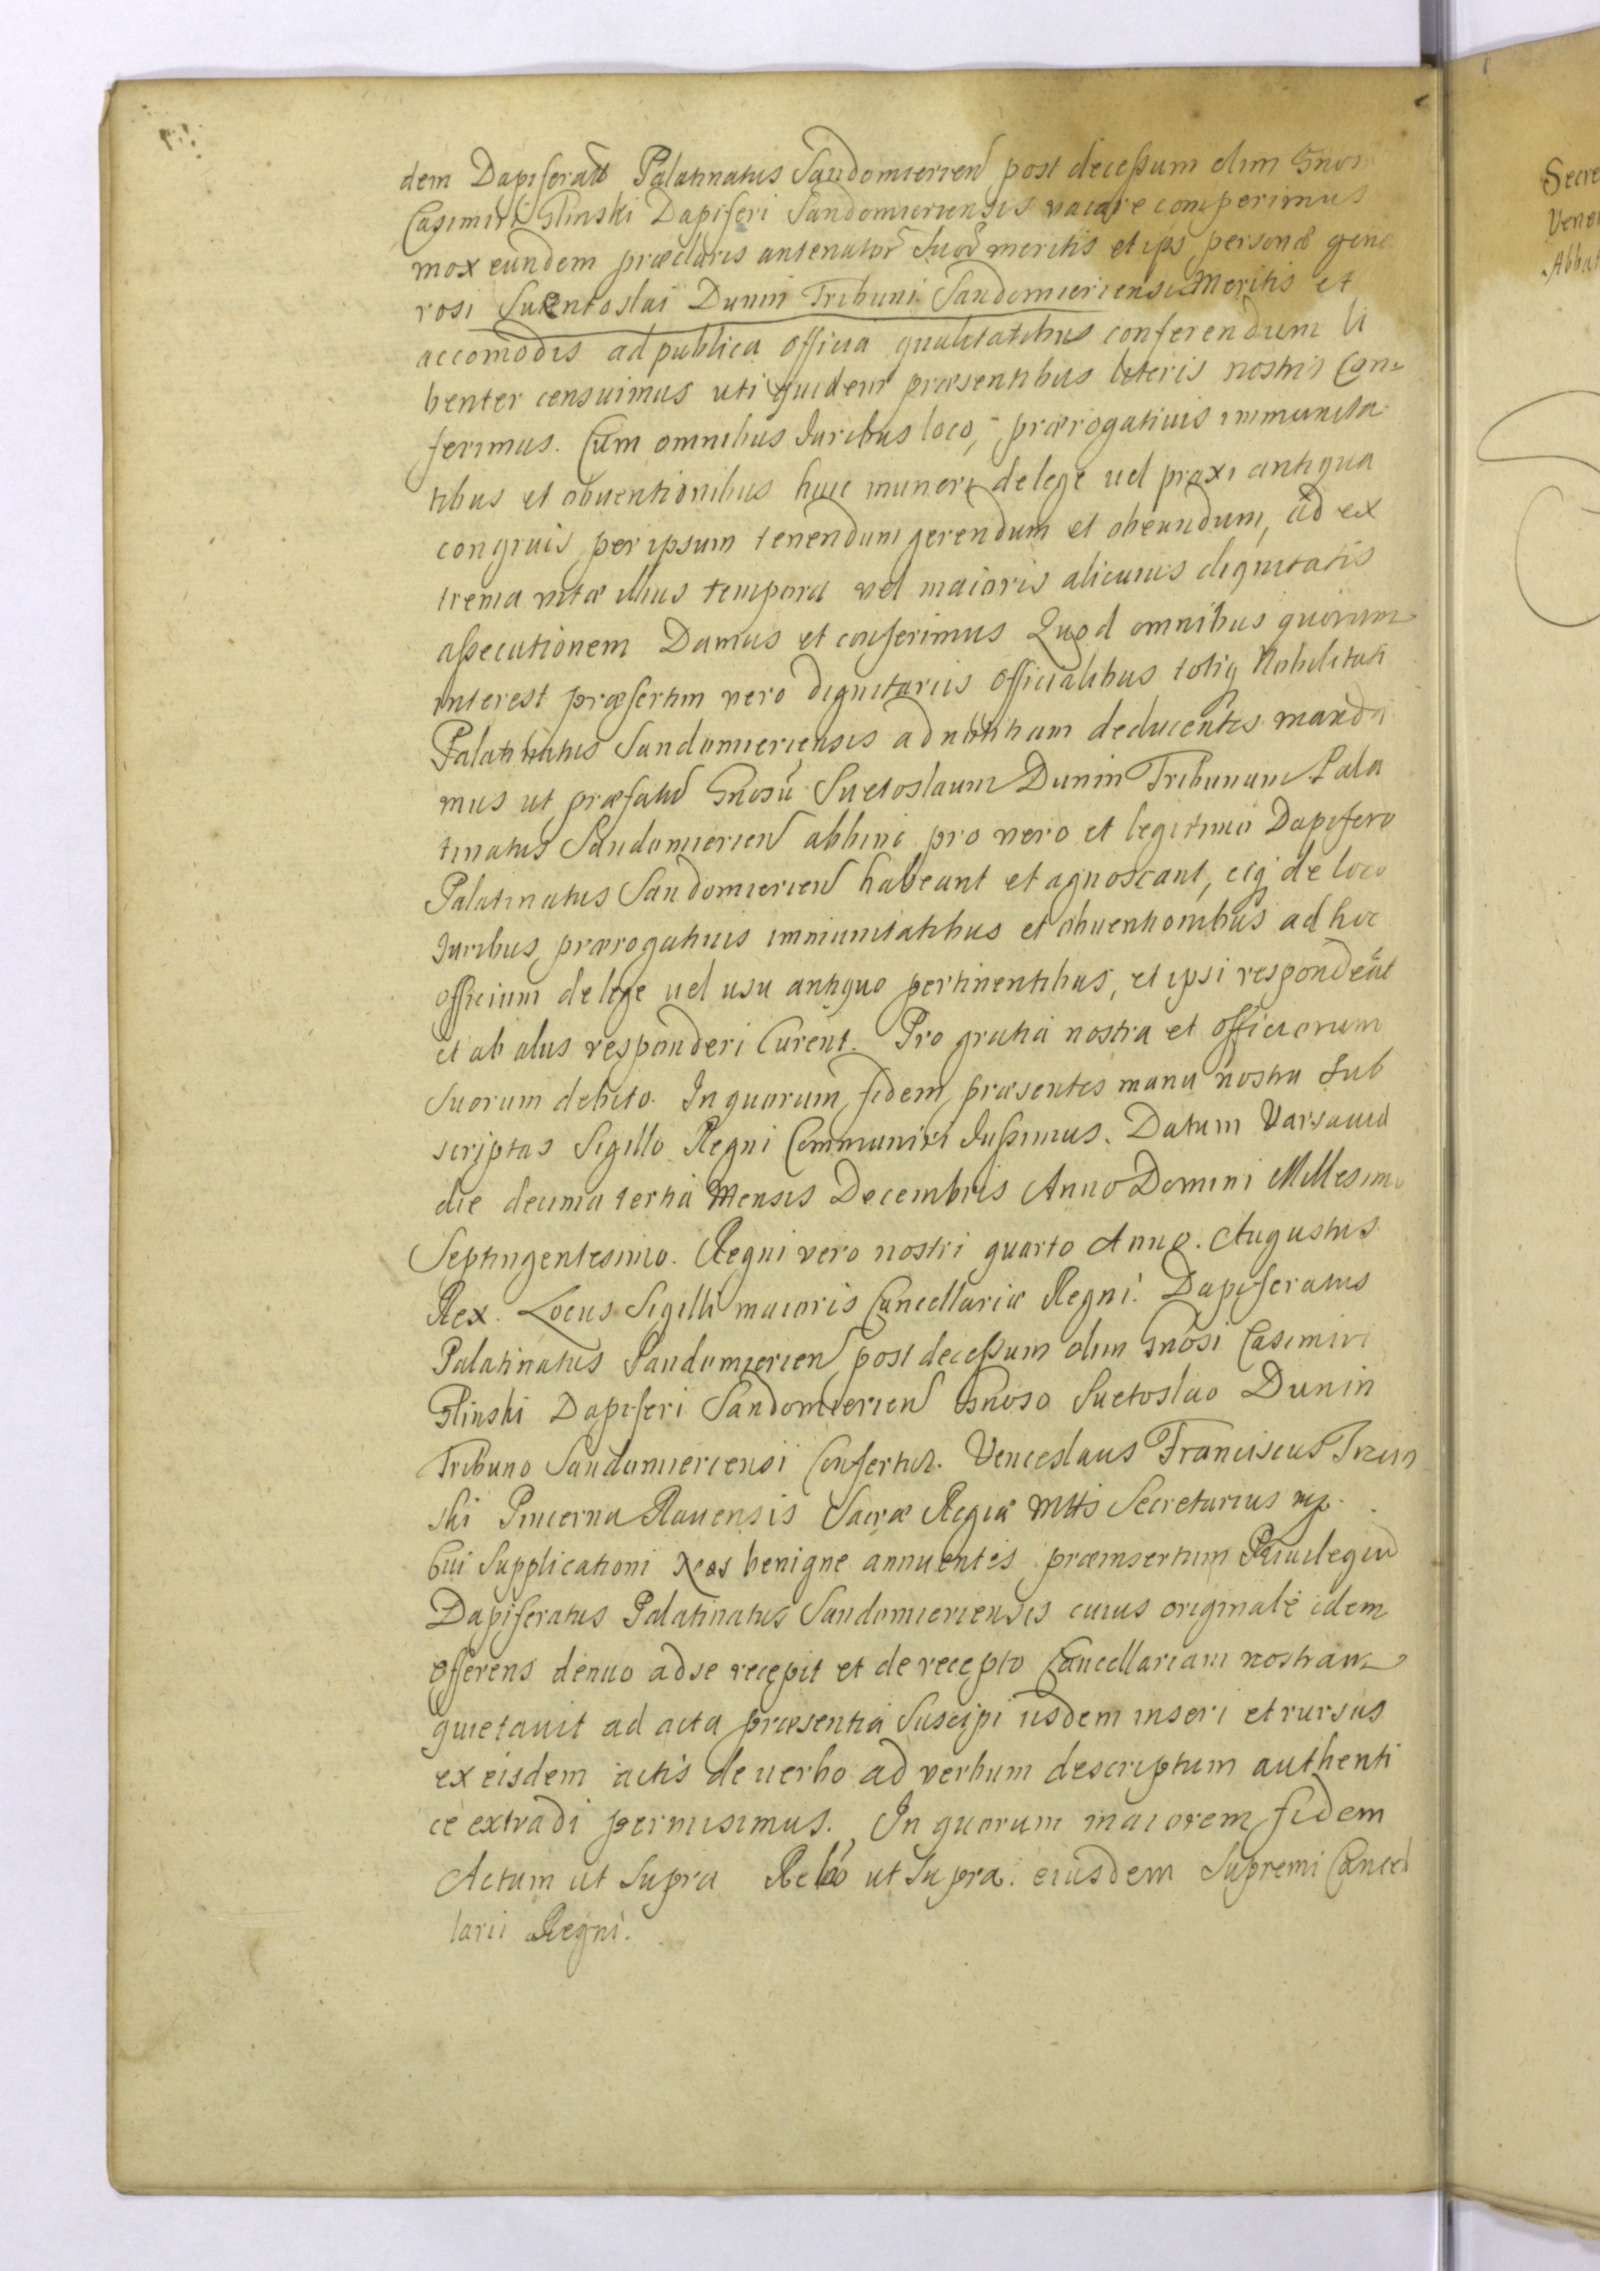 dem Dapiferatū Palatinatus Sandomirien post decessum olim Gnosi
Casimiri Glinski Dapiferi Sandomiriensis vacare comperimus
mox eundem præclaris antenator Suor meritis et ips personæ gene
rosi Suentoslai Dunin Tribuni Sandomieriensis Meritis et
accomodis ad publica officia qualitatibus conferendum li
benter censuimus uti quidem præsentibus literis nostris Con-
ferimus. Cum omnibus Juribus loco, prærogativis immunita
tibus et obventionibus huic muneri de lege vel praxi antiqua
congruis per ipsum tenendum gerendum et obeundum, ad ex
trema vitæ illius tempora vel maioris alicuius dignitatis
assecutionem Damus et conferimus Quod omnibus quorum
interest præsertim vero dignitariis officialibus totiq Nobilitati
Palatinatus Sandomieriensis ad notitiam deducentes manda
mus ut præfatū Gnosū Suetoslaum Dunin Tribunum Pala
tinatus Sandomierien abhinc pro vero et legitimo Dapifero
Palatinatus Sandomierien habeant et agnoscant, eiq de loco
Juribus, prærogativis immunitatibus et obventionibus ad hoc
officium de lege vel usu antiquo pertinentibus, et ipsi respondeāt
et ab aliis responderi Curent. Pro gratia nostra et officiorum
Suorum debito. In quorum fidem præsentes manu nostra Sub
scriptas Sigillo Regni Communiri Jussimus. Datum Varsavia
die decima tertia Mensis Decembris Anno Domini Millesimo
Septingentesimo. Regni vero nostri quarto Anno. Augustus
Rex. Locus Sigilli maioris Cancellariæ Regni. Dapiferatus
Palatinatus Sandomierien post decessum olim Gnosi Casimiri
Glinski Dapiferi Sandomierien Gnoso Suetoslao Dunin
Tribuno Sandomieriensi Confertur. Venceslaus Franciscus Trzin
ski Pincerna Ravensis Sacræ Regiæ Mttis Secretarius mp.
Cui Supplicationi Nos benigne annuentes præinsertum Privilegiū
Dapiferatus Palatinatus Sandomieriensis cuius originale idem
offerens denuo ad se recepit et de recepto Cancellariam nostram
quietavit ad acta præsentia Suscipi iisdem inseri et rursus
ex eisdem actis de verbo ad verbum descriptum authenti
ce extradi permisimus. In quorum maiorem fidem
Actum ut Supra Relāo ut Supra. eiusdem Supremi Cancel
larii Regni.
Secre
Vene
Abbat